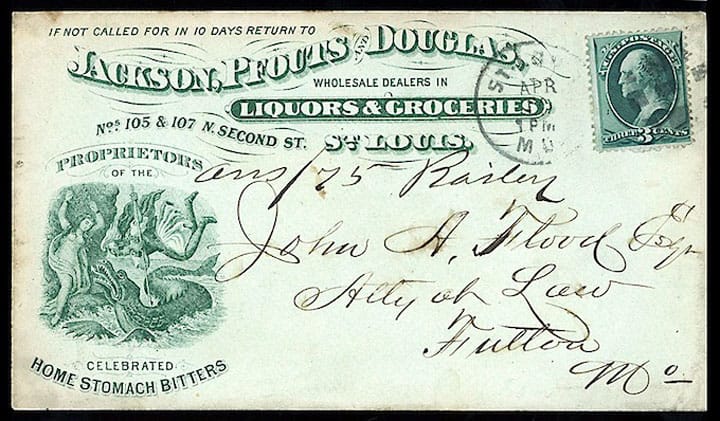 IF NOT CALLED FOR IN 10 DAYS RETURN TO
JACKSON, PFOUTS AND DOUGLAS,
WHOLESALE DEALERS IN
LIQUORS & GROCERIES
Nos 105 & 107 N. SECOND ST. ST LOUIS.
PROPRIETORS
OF THE
CELEBRATED
HOME STOMACH BITTERS
U.S. POSTAGE
THREE 3 CENTS
APR
1 PM
MO
ans /75
John A. Flood Esqr
Atty at Law
Fulton
Mo